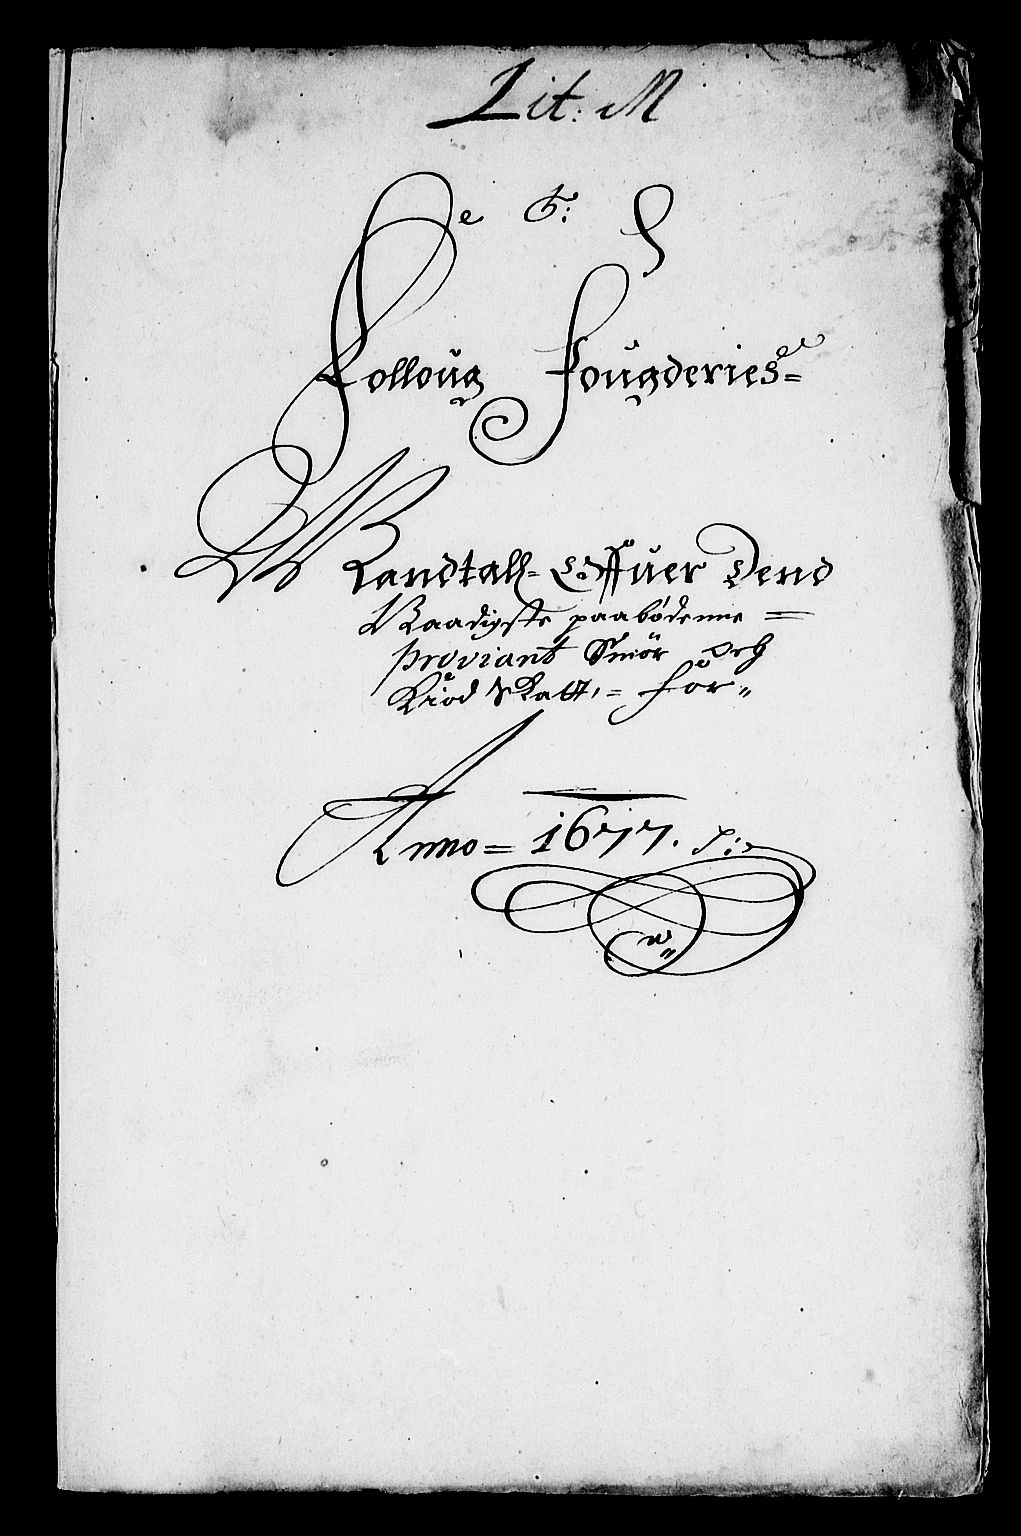 Lit: M
Folloug Fougderies=
Mandtall= Offuer Dend
Naadigste paabødenne =
proviant Smör och
Kiöd Skatt,= för"
Anno= 1677.